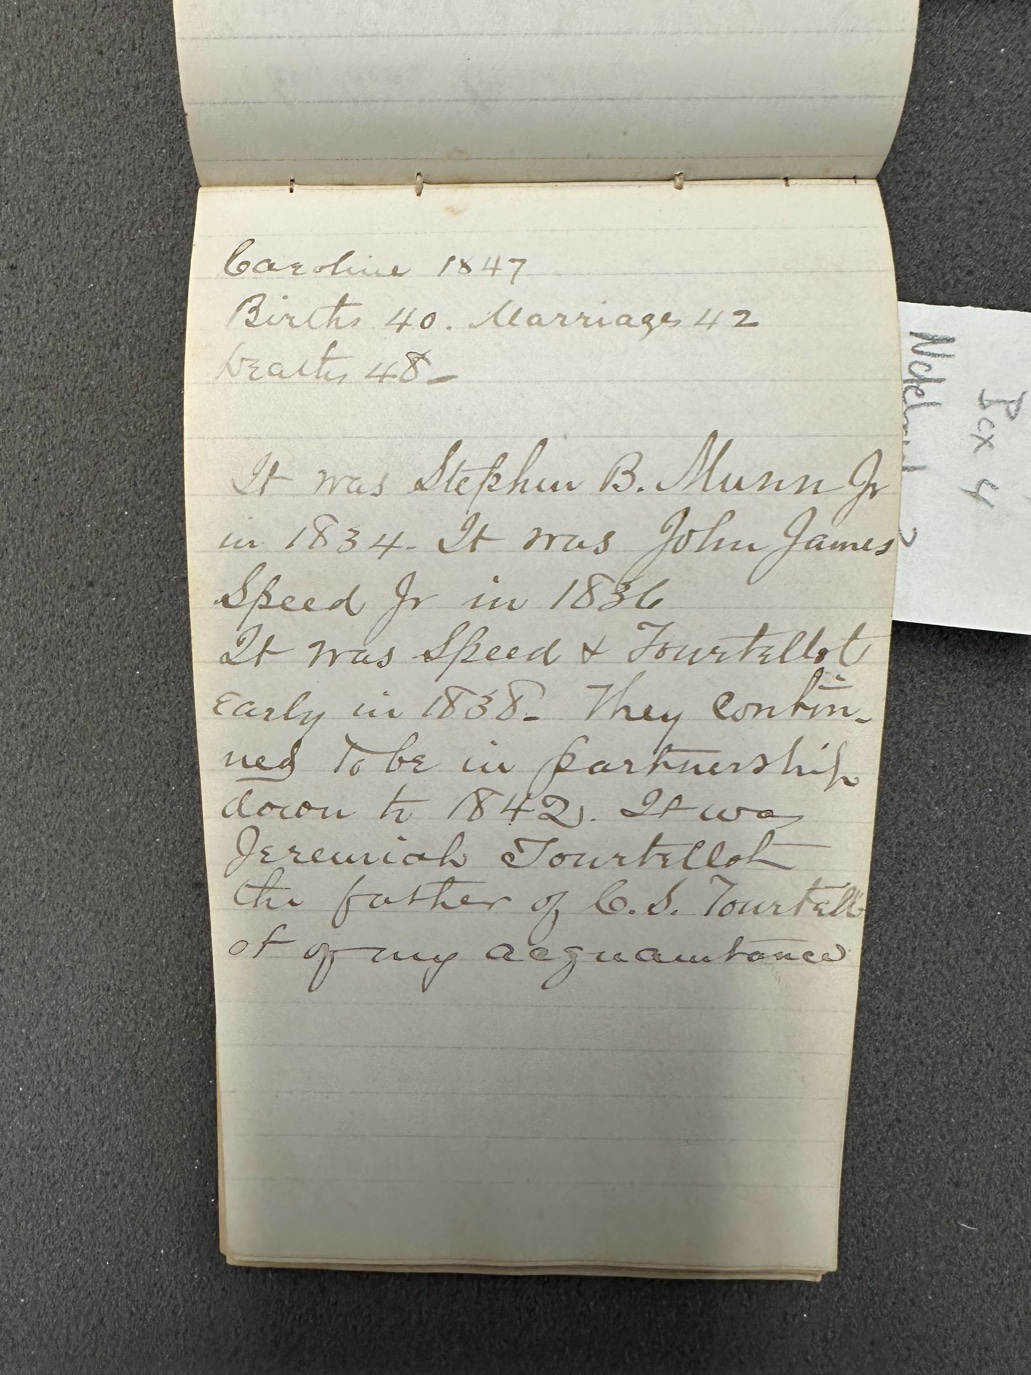 Caroline 1847
Births 40. Marriages 42
Deaths 48-
It was Stephen B. Munn Jr
in 1834. It was John James
Speed Jr in 1836
It was Speed & Tourtellot
Early in 1838- They contin-
ued to be in partnership
down to 1842. It was
Jeremiah Tourtellot
the father of C. S. Tourtell-
ot of my acquaintance
Box 4